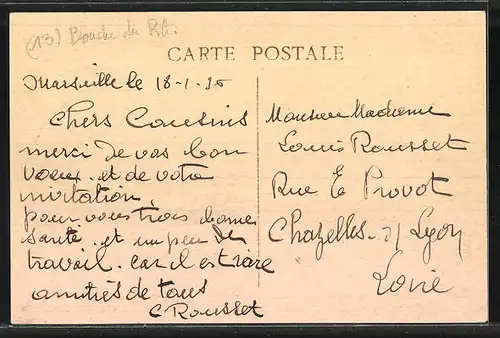 (13) Bouche du Rh.
CARTE POSTALE
Marseille le 18-1-36
Chers Cousins
merci de vos bon
voeux. et de votre
invitation,
pour vous trois bonne
santé.. et un peu de
travail. car il est rare
amitiés de tous
C Rousset
Monsieur Madame
Louis Rousset
Rue E Provot
Chazelles. s/ Lyon
Loire